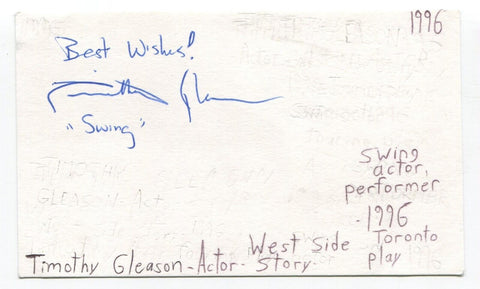 1996
Best Wishes!
Timothy Gleason
"Swing"
TIMOTHY
GLEASON - Act
swing
actor,
performer
-1996
Toronto
play
West Side
Timothy Gleason - Actor - Story -